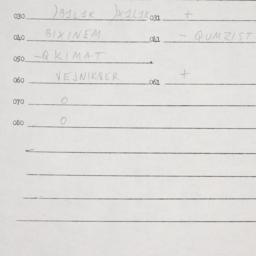 030 031 +
040 BIXINEM 041 - QUMZIST
050 -QKIMAT
060 VEJNIKBER 061 +
070 0
080 0